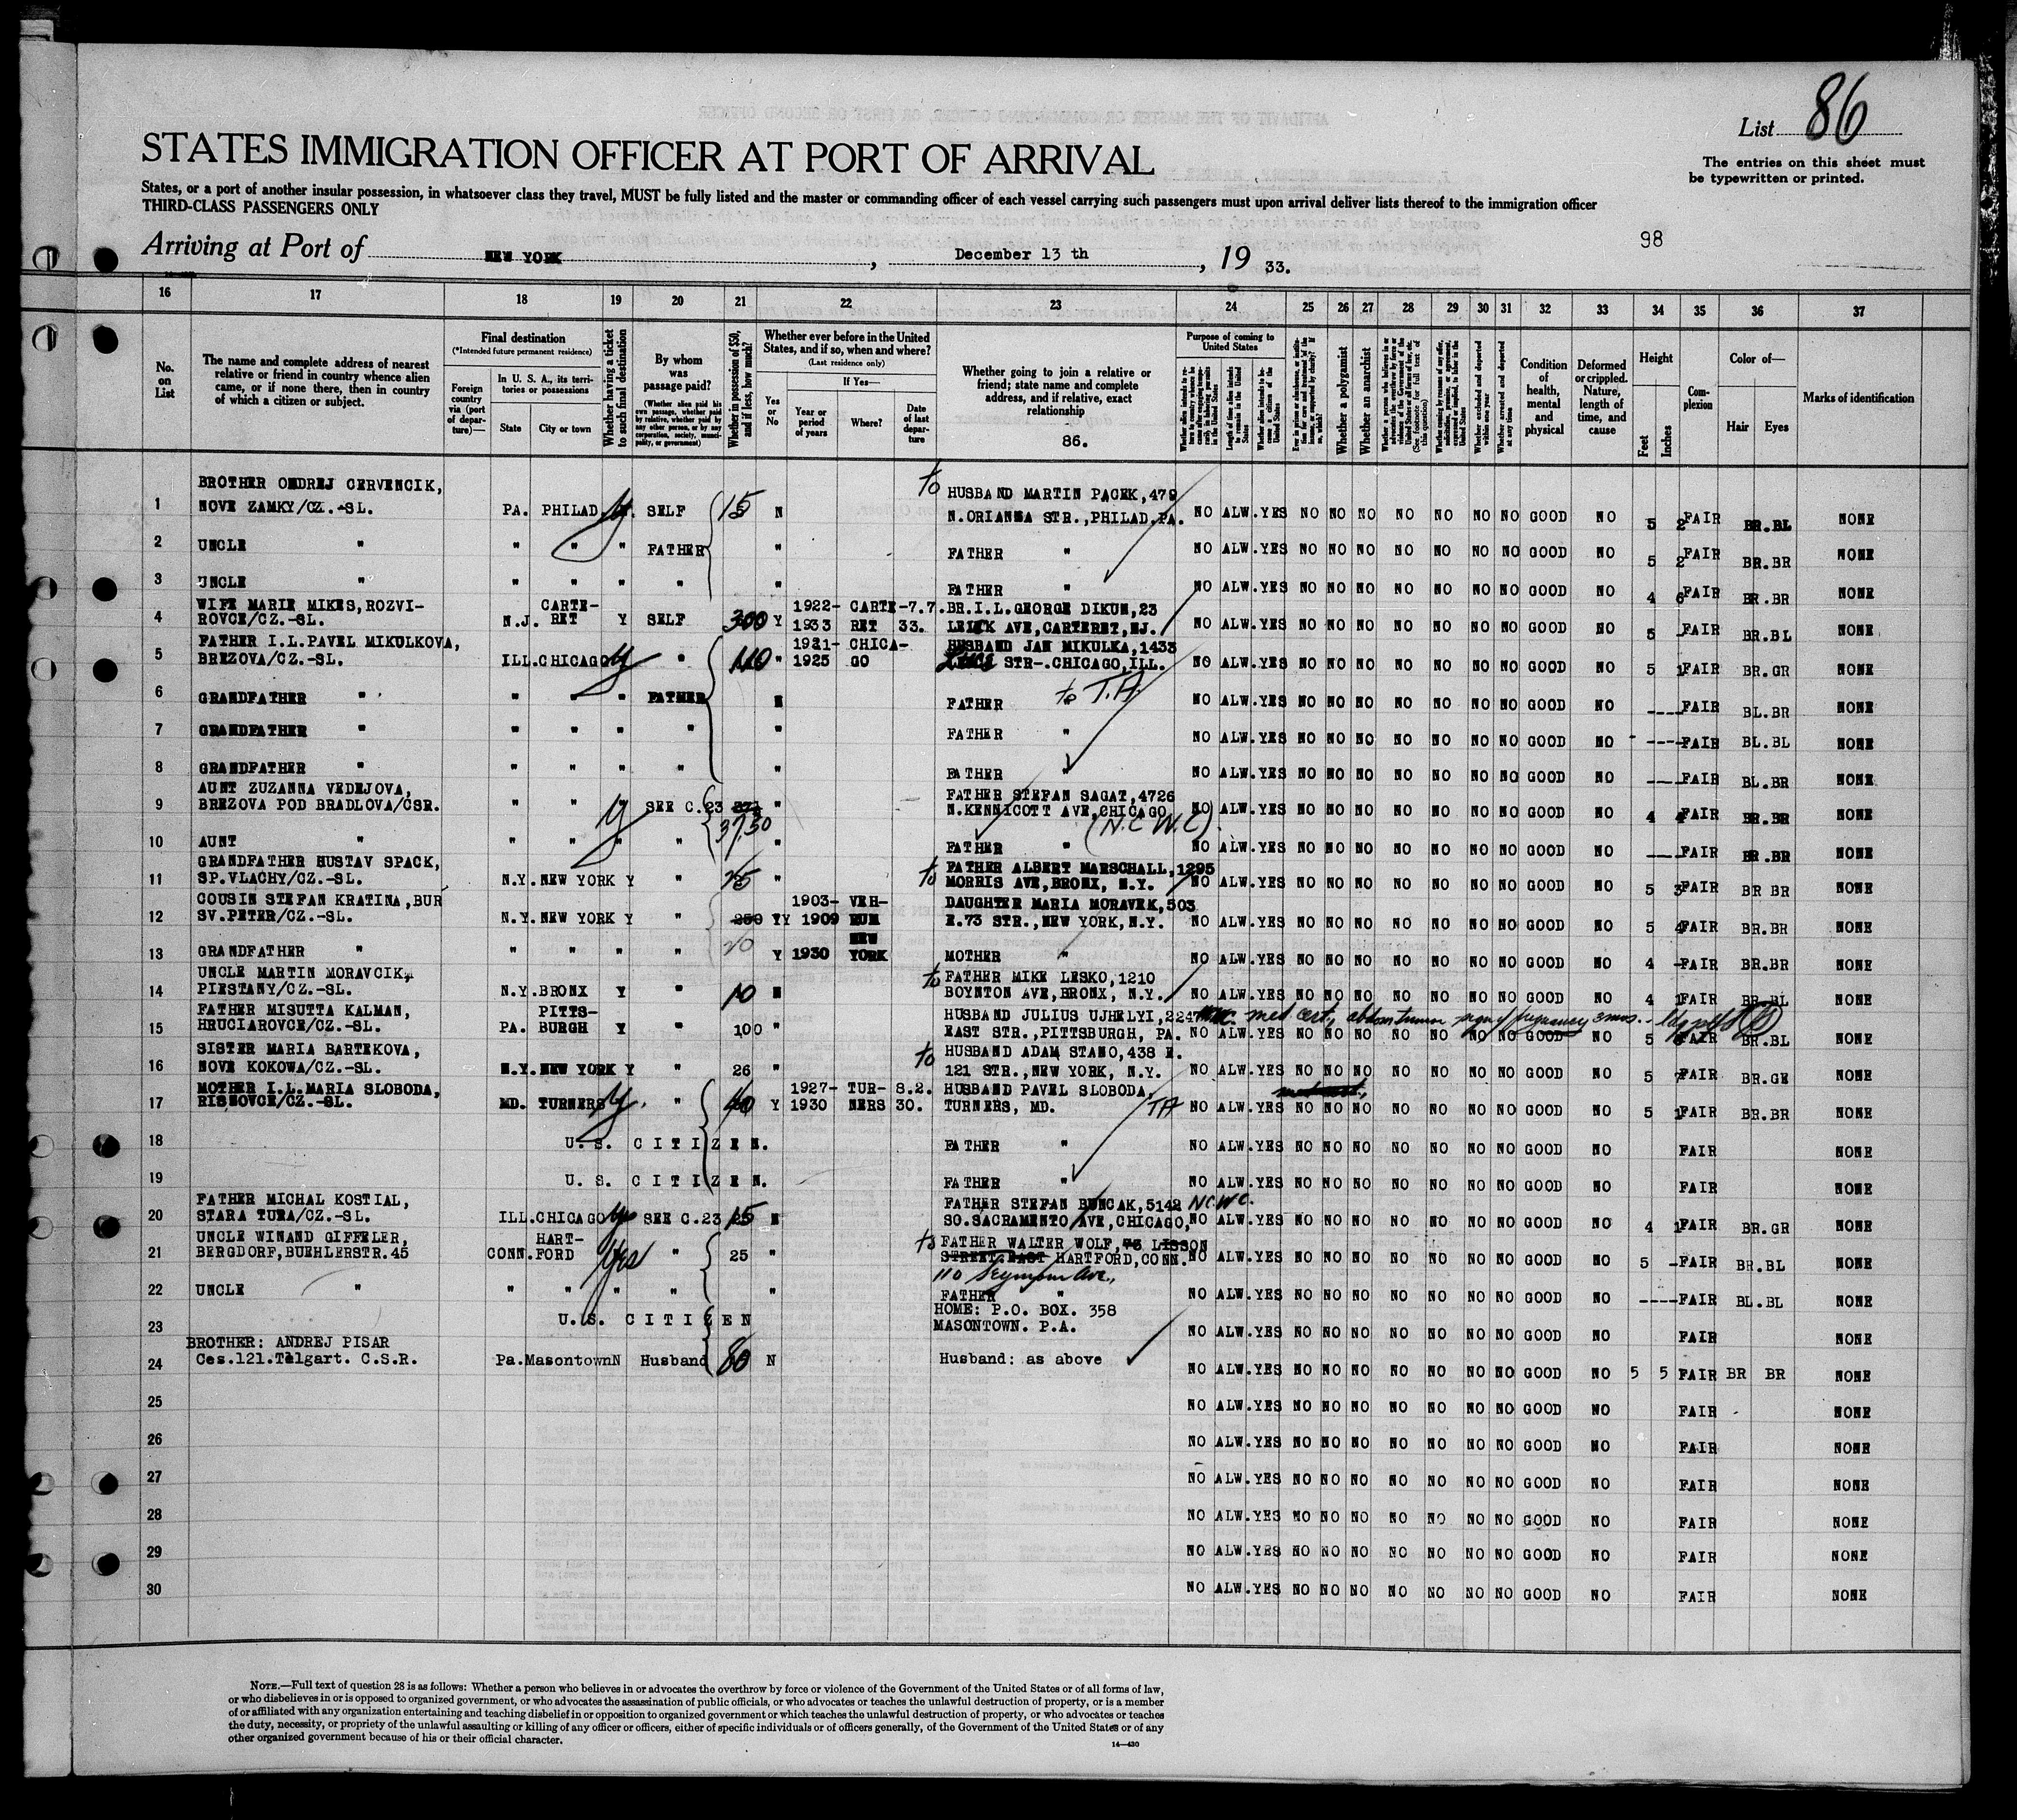 List 86
STATES IMMIGRATION OFFICER AT PORT OF ARRIVAL
The entries on this sheet must
be typewritten or printed.
States, or a port of another insular possession, in whatsoever class they travel, MUST be fully listed and the master or commanding officer of each vessel carrying such passengers must upon arrival deliver lists thereof to the immigration officer
THIRD-CLASS PASSENGERS ONLY
98
Arriving at Port of NEW YORK, December 13 th, 19 33.
16 17 18 19 20 21 22 23 24 25 26 27 28 29 30 31 32 33 34 35 36 37
No. on List
The name and complete address of nearest relative or friend in country whence alien came, or if none there, then in country of which a citizen or subject.
Final destination
(*Intended future permanent residence)
Foreign country via (port of departure)—
In U. S. A., its territories or possessions
State City or town
Whether having a ticket to such final destination
By whom was passage paid?
(Whether alien paid his own passage, whether paid by relative, whether paid by any other person, or by any corporation, society, municipality, or government)
Whether in possession of $50, and if less, how much?
Whether ever before in the United States, and if so, when and where?
(Last residence only)
Yes or No
If Yes—
Year or period of years Where? Date of last departure
Whether going to join a relative or friend; state name and complete address, and if relative, exact relationship
86.
Purpose of coming to United States
Whether a polygamist
Whether an anarchist
Condition of health, mental and physical
Deformed or crippled. Nature, length of time, and cause
Height
Feet Inches
Complexion
Color of—
Hair Eyes
Marks of identification
BROTHER ONDREJ CERVENCIK, to HUSBAND MARTIN PACEK,479
1 NOVE ZAMKY/CZ.-SL. PA. PHILAD. y SELF 15 N N.ORIANNA STR.,PHILAD.PA. NO ALW.YES NO NO NO NO NO NO NO GOOD NO 5 2 FAIR BR.BL NONE
2 UNCLE " " " " FATHER " FATHER " NO ALW.YES NO NO NO NO NO NO NO GOOD NO 5 2 FAIR BR.BR NONE
3 UNCLE " " " " " " FATHER " NO ALW.YES NO NO NO NO NO NO NO GOOD NO 4 6 FAIR BR.BR NONE
WIFE MARIE MIKES,ROZVI- CARTE- 1922- CARTE-7.7. BR.I.L.GEORGE DIKUN,23
4 ROVCE/CZ.-SL. N.J. RET Y SELF 300 Y 1933 RET 33. LEICK AVE,CARTERET,NJ. NO ALW.YES NO NO NO NO NO NO NO GOOD NO 5 - FAIR BR.BL NONE
FATHER I.L.PAVEL MIKULKOVA, 1921- CHICA- HUSBAND JAN MIKULKA,1433
5 BREZOVA/CZ.-SL. ILL.CHICAGO y " 110 " 1925 GO STR-.CHICAGO,ILL. NO ALW.YES NO NO NO NO NO NO NO GOOD NO 5 1 FAIR BR.GR NONE
6 GRANDFATHER " " " " FATHER N FATHER " to T.A. NO ALW.YES NO NO NO NO NO NO NO GOOD NO ---- FAIR BL.BR NONE
7 GRANDFATHER " " " " " " FATHER " NO ALW.YES NO NO NO NO NO NO NO GOOD NO ---- FAIR BL.BL NONE
8 GRANDFATHER " " " " " " FATHER " NO ALW.YES NO NO NO NO NO NO NO GOOD NO ---- FAIR BL.BR NONE
AUNT ZUZANNA VEDEJOVA, FATHER STEFAN SAGAT,4726
9 BREZOVA POD BRADLOVA/CSR. " " y SEE C.23 " N.KENNICOTT AVE,CHICAGO NO ALW.YES NO NO NO NO NO NO NO GOOD NO 4 4 FAIR BR.BR NONE
37,50 (N.C.W.C)
10 AUNT " " " " " " FATHER " NO ALW.YES NO NO NO NO NO NO NO GOOD NO ---- FAIR BR.BR NONE
GRANDFATHER HUSTAV SPACK, to FATHER ALBERT MARSCHALL,1295
11 SP.VLACHY/CZ.-SL. N.Y.NEW YORK Y " 25 " MORRIS AVE,BRONX, N.Y. NO ALW.YES NO NO NO NO NO NO NO GOOD NO 5 3 FAIR BR BR NONE
COUSIN STEFAN KRATINA,BUR 1903- VEH- DAUGHTER MARIA MORAVEK,503
12 SV.PETER/CZ.-SL. N.Y.NEW YORK Y " 250 Y 1909 RUM E.73 STR.,NEW YORK,N.Y. NO ALW.YES NO NO NO NO NO NO NO GOOD NO 5 4 FAIR BR.BR NONE
NEW
13 GRANDFATHER " " " " " 20 Y 1930 YORK MOTHER " NO ALW.YES NO NO NO NO NO NO NO GOOD NO 4 - FAIR BR.BR NONE
UNCLE MARTIN MORAVCIK, to FATHER MIKE LESKO,1210
14 PIESTANY/CZ.-SL. N.Y.BRONX Y " 10 N BOYNTON AVE,BRONX, N.Y. NO ALW.YES NO NO NO NO NO NO NO GOOD NO 4 1 FAIR BR.BL NONE
FATHER MISUTTA KALMAN, PITTS- HUSBAND JULIUS UJHELYI,2247 med cert,
15 HRUCIAROVCE/CZ.-SL. PA. BURGH Y " 100 " EAST STR.,PITTSBURGH, PA. NO ALW.YES NO NO NO NO NO NO NO GOOD NO 5 FAIR BR.BL NONE
SISTER MARIA BARTEKOVA, to HUSBAND ADAM STANO,438 E.
16 NOVE KOKOWA/CZ.-SL. N.Y.NEW YORK Y " 26 " 121 STR.,NEW YORK, N.Y. NO ALW.YES NO NO NO NO NO NO NO GOOD NO 5 7 FAIR BR.GR NONE
MOTHER I.L.MARIA SLOBODA, 1927- TUR- 8.2. HUSBAND PAVEL SLOBODA,
17 RISNOVCE/CZ.-SL. MD. TURNERS y " 40 Y 1930 NERS 30. TURNERS, MD. TA NO ALW.YES NO NO NO NO NO NO NO GOOD NO 5 1 FAIR BR.BR NONE
18 U. S. C I T I Z E N. FATHER " NO ALW.YES NO NO NO NO NO NO NO GOOD NO FAIR NONE
19 U. S. C I T I Z E N. FATHER " NO ALW.YES NO NO NO NO NO NO NO GOOD NO FAIR NONE
FATHER MICHAL KOSTIAL, FATHER STEFAN BUNCAK,5142 N.C.W.C.
20 STARA TURA/CZ.-SL. ILL.CHICAGO SEE C.23 15 N SO.SACRAMENTO AVE,CHICAGO, NO ALW.YES NO NO NO NO NO NO NO GOOD NO 4 1 FAIR BR.GR NONE
UNCLE WINAND GIFFELER, HART- to FATHER WALTER WOLF,73 LISSON
21 BERGDORF,BUEHLERSTR.45 CONN.FORD Yes " 25 " STREET.EAST HARTFORD,CONN. NO ALW.YES NO NO NO NO NO NO NO GOOD NO 5 - FAIR BR.BL NONE
110 Seymour Ave.,
22 UNCLE " " " " " " FATHER " NO ALW.YES NO NO NO NO NO NO NO GOOD NO ---- FAIR BL.BL NONE
HOME: P.O. BOX. 358
23 U.S. C I T I Z E N MASONTOWN. P.A. NO ALW.YES NO NO NO NO NO NO NO GOOD NO FAIR NONE
BROTHER: ANDREJ PISAR
24 Ces.121.Telgart. C.S.R. Pa.Masontown N Husband 80 N Husband: as above NO ALW.YES NO NO NO NO NO NO NO GOOD NO 5 5 FAIR BR BR NONE
25 NO ALW.YES NO NO NO NO NO NO NO GOOD NO FAIR NONE
26 NO ALW.YES NO NO NO NO NO NO NO GOOD NO FAIR NONE
27 NO ALW.YES NO NO NO NO NO NO NO GOOD NO FAIR NONE
28 NO ALW.YES NO NO NO NO NO NO NO GOOD NO FAIR NONE
29 NO ALW.YES NO NO NO NO NO NO NO GOOD NO FAIR NONE
30 NO ALW.YES NO NO NO NO NO NO NO GOOD NO FAIR NONE
NOTE.—Full text of question 28 is as follows: Whether a person who believes in or advocates the overthrow by force or violence of the Government of the United States or of all forms of law,
or who disbelieves in or is opposed to organized government, or who advocates the assassination of public officials, or who advocates or teaches the unlawful destruction of property, or is a member
of or affiliated with any organization entertaining and teaching disbelief in or opposition to organized government or which teaches the unlawful destruction of property, or who advocates or teaches
the duty, necessity, or propriety of the unlawful assaulting or killing of any officer or officers, either of specific individuals or of officers generally, of the Government of the United States or of any
other organized government because of his or their official character.
14—430